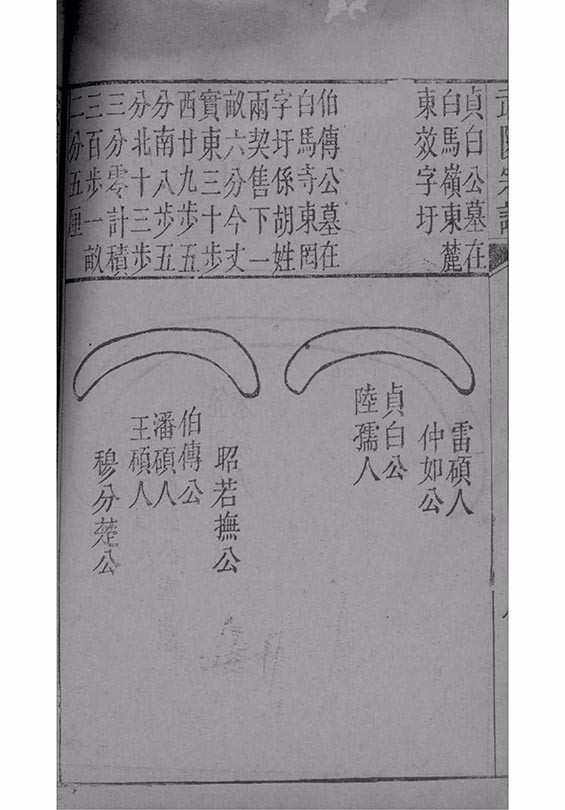 貞白公墓在
白馬嶺東麓
東效字圩
伯傳公墓在
白馬寺東岡
字圩係胡姓
兩契售下一
畝六分今丈
實東三十步
西廿九步五
分南八步五
分北十三步
三分零計積
三百步一畝
二分五厘
雷碩人
仲如公
貞白公
陸孺人
昭若撫公
伯傳公
潘碩人
王碩人
穆分楚公